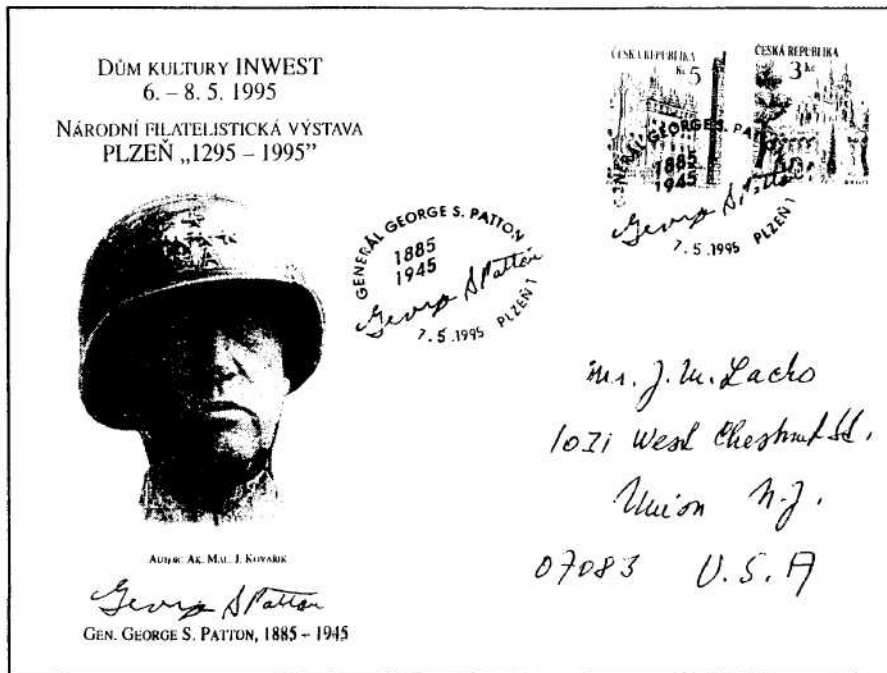 DŮM KULTURY INWEST
6. – 8. 5. 1995
NÁRODNÍ FILATELISTICKÁ VÝSTAVA
PLZEŇ „1295 – 1995”
AUTOR: AK. MAL. J. KOVAŘÍK
George S Patton
GEN. GEORGE S. PATTON, 1885 – 1945
GENERÁL GEORGE S. PATTON
1885
1945
George S Patton
7.5.1995 PLZEŇ 1
ČESKÁ REPUBLIKA
Kč 5
ČESKÁ REPUBLIKA
3 Kč
GENERÁL GEORGE S. PATTON
1885
1945
George S Patton
7.5.1995 PLZEŇ 1
Mr. J. M. Lacko
West Chestnut St.
Union N.J.
07083 U.S.A